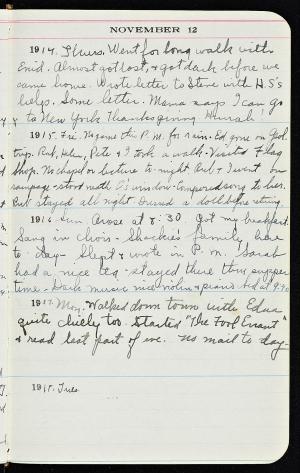 NOVEMBER 12
1914. Thurs. Went for long walk with
Enid. Almost got lost, & got dark before we
came home. Wrote letter to Steve with H.S's
help. Some letter. Mama says I can go
to New York Thanksgiving. Hurrah!
1915. Fri. No game this P.M. for rain. Ed gone on Gool
trip. Rub, Helen, Pete & I took a walk - Visited Flag
Shop. No chapel or lecture to-night. Rub & I went on
rampage - stood 'neath window - Composed song to her.
Rub stayed all night. Burned a doll before retiring.
1916 Sun. Arose at 8:30 Got my breakfast.
Sang in choir - family here
to-day - Slept & wrote in P.M. Sarah
had a nice tea - stayed there thru supper
time - music nice violin & piano. bed at 9:40
1917. Mon. Walked down town with Edna
quite chilly too. Started "The Fool Errant"
& read last part of eve. No mail to-day -
191 Tues